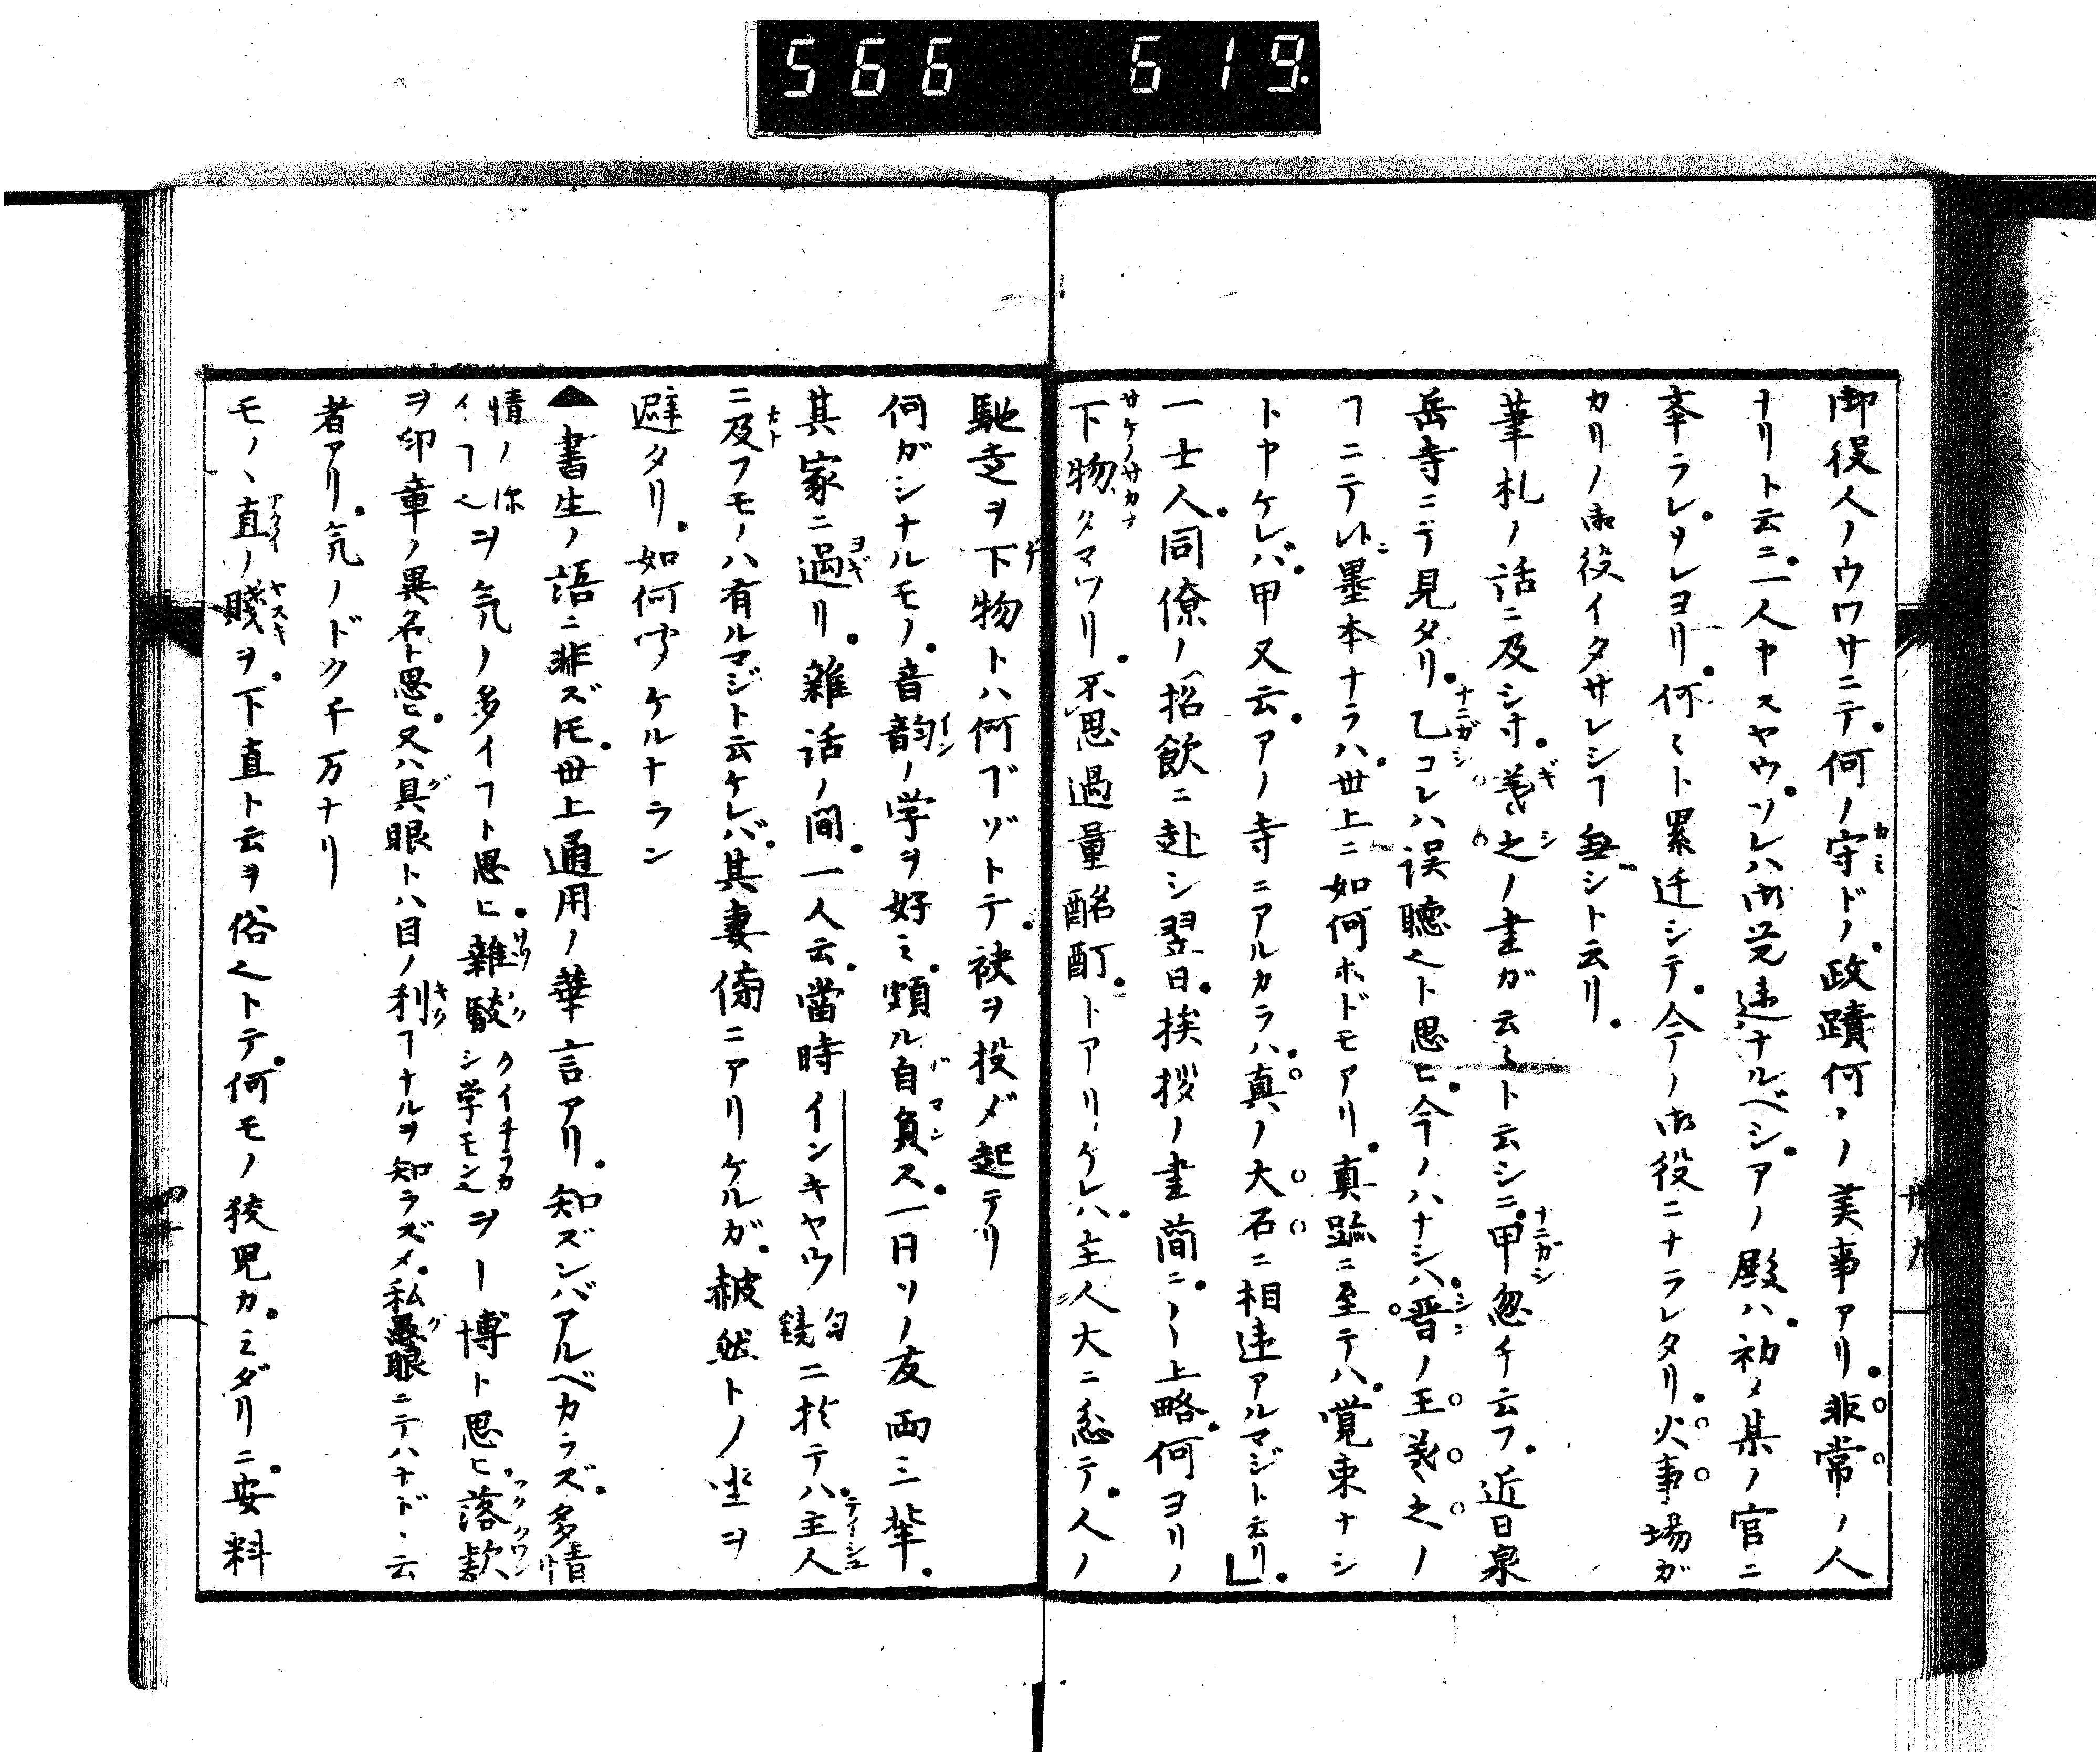 566 619
御役人ノウワサニテ。何ノ守ドノ。政蹟何々ノ美事アリ。非常ノ人
ナリト云ニ。一人ヤスヤウ。ソレハ御覚違ナルベシ。アノ殿ハ。初メ某ノ官ニ
奉ラレ。ソレヨリ。何々ト累迁シテ。今ノ御役ニナラレタリ。火事場ガ
カリノ御役イタサレシヿ無シト云リ。
筆札ノ話ニ及シ寸。羲之ノ書ガ云々ト云シニ。甲忽チ云フ。近日泉
岳寺ニテ見タリ。乙コレハ誤聴也ト思ヒ。今ノハナシハ。晋ノ王羲之ノ
ヿニテ墨本ナラハ。世上ニ如何ホドモアリ。真跡ニ至テハ。覚束ナシ
トヤケレバ。甲又云。アノ寺ニアルカラハ。真ノ大石ニ相違アルマジト云リ。」
一士人。同僚ノ招飲ニ赴シ翌日。挨拶ノ書簡ニ。上略。何ヨリノ
下物クマワリ。不思過量酩酊。トアリケレハ。主人大ニ忿テ。人ノ
馳走ヲ下物トハ何ヿゾトテ。袂ヲ投ジ起テリ
何ガシナルモノ。音韵ノ学ヲ好ミ。頗ル自負ス。一日ソノ友両三輩。
其家ニ過リ。雑話ノ間。一人云。當時インキヤウ鏡ニ於テハ。主人
ニ及フモノハ有ルマジト云ケレバ。其妻傍ニアリケルガ。赧然トノ坐ヲ
避タリ。如何聞ケルナラン
▲書生ノ語ニ非ズ𪜈。世上通用ノ華言アリ。知ズンバアルベカラズ。多情
情ノ深イヿ也ヲ気ノ多イヿト思ヒ。雑駁クイチラカシ学モン也ヲ博ト思ヒ。落款
ヲ印章ノ異名ト思ヒ。又ハ具眼トハ目ノ利ヿナルヲ知ラズメ。私愚眼ニテハナド云
者アリ。気ノドク千万ナリ
モノヽ直ノ賤ヲ。下直ト云ヲ俗也トテ。何モノ狡児カ。ミダリニ。安料